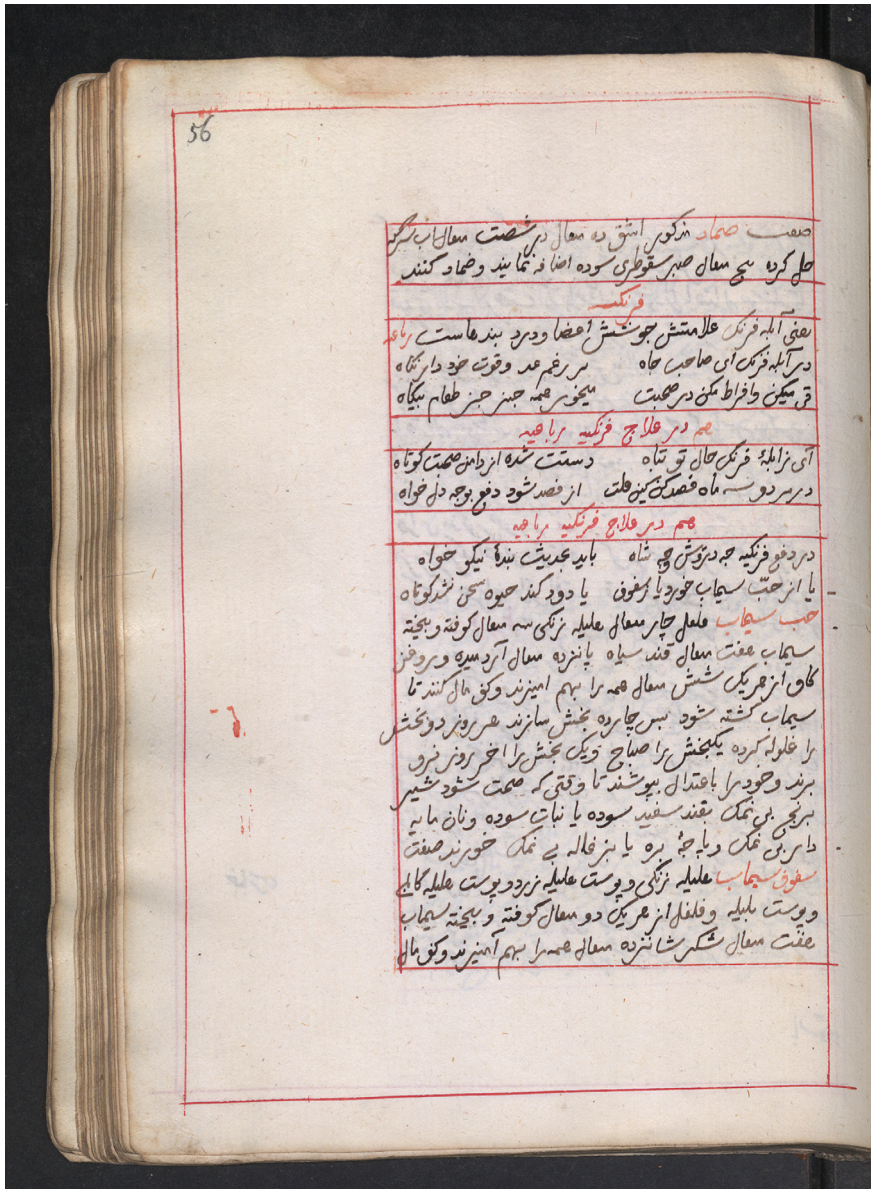 56
صفت ضماد مذکور اشق ده مثقال در شصت مثقال اب سرکه
حل کرده پنج مثقال صبر سقوطری سوده اضافه نمایند و ضماد کنند
فرنکیه
یعنی آبله فرنک علامتش جوشش اعضا و درد بندهاست رباعیه
در آبله فرنک ای صاحب جاه بر رغم عدو قوت خود دار نکاه
قی میکن و افراط مکن در صحبت میخور همه چیز جز طعام بیکاه
هم در علاج فرنکیه رباعیه
ای ز ابلهٔ فرنک حال تو تباه دستت شده از دامن صحت کوتاه
در هر دو سه ماه فصد کن کین علت از فصد شود دفع بوجه دل خواه
هم در علاج فرنکیه رباعیه
در دفع فرنکیه چه درویش و چه شاه باید بحدیث بندهٔ نیکو خواه
یا از حبّ سیماب خورد یا ز سفوف یا دود کند حیوه سخن شد کوتاه
حب سیماب فلفل چار مثقال هلیله زنکی سه مثقال کوفته و بیخته
سیماب هفت مثقال قند سیاه پانزده مثقال آرد میده و روغن
کاو از هر یک شش مثقال همه را بهم امیزند و کف مال کنند تا
سیماب کشته شود پس چارده بخش سازند هر روز دو بخش
را غلوله کرده یکبخش را صباح و یک بخش را اخر روز فرو
برند و خود را باعتدال بپوشند تا وقتی که صحت شود شیر
برنج بی نمک بقند سفید سوده یا نبات سوده و نان مایه
دار بی نمک و پاچهٔ بره یا بزغاله بی نمک خورند صفت
سفوف سیماب هلیله زنکی و پوست هلیله زرد و پوست هلیله کابلی
و پوست بلیله و فلفل از هر یک دو مثقال کوفته و بیخته سیماب
هفت مثقال شکر شانزده مثقال همه را بهم آمیزند و کف مال